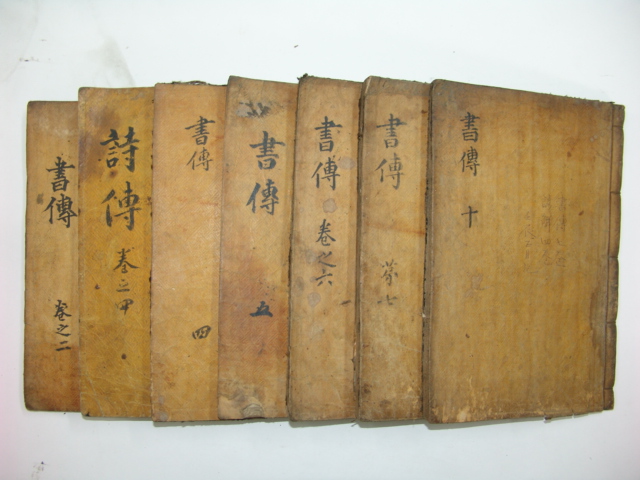 書傳
卷之二
詩傳
卷之四
書傳
四
書傳
五
書傳
卷之六
書傳
第七
書傳
十